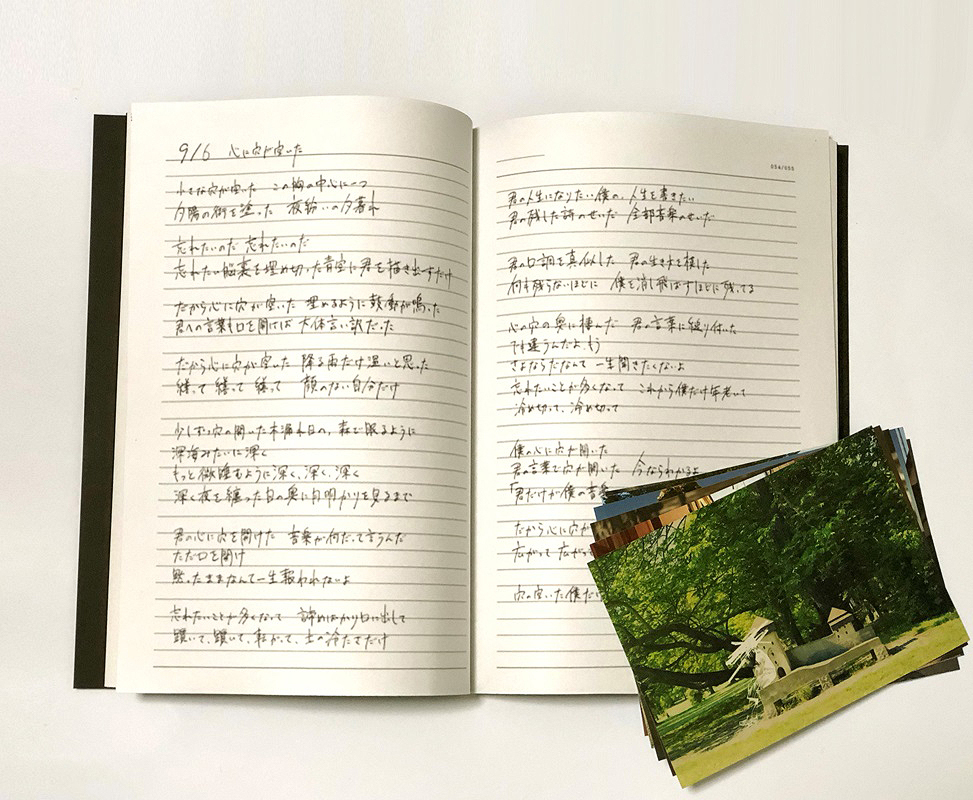 9/6 心に穴が空いた
小さな穴が空いた この胸の中心に一つ
夕陽の街を塗った 夜紛いの夕暮れ
忘れたいのだ 忘れたいのだ
忘れたい脳裏を埋め切った青空に君を描き出すだけ
だから心に穴が空いた 埋めるように鼓動が鳴った
君への言葉も口を開けば 大体言い訳だった
だから心に穴が空いた 降る雨だけ温いと思った
繕って 繕って 繕って 顔のない自分だけ
少しずつ穴の開いた木漏れ日の、森で眠るように
深海みたいに深く
もっと微睡むように深く、深く、深く
深く夜を纏った目の奥に月明かりを見るまで
君の心に穴を開けた 音楽が何だって言うんだ
ただ口を開け
黙ったままなんて一生報われないよ
忘れたいことが多くなって 諦めばかり口に出して
躓いて、躓いて、転がって、土の冷たさだけ
054/055
君の人生になりたい僕の、人生を書きたい
君の残した詩のせいだ 全部音楽のせいだ
君の口調を真似した 君の生き方を模した
何も残らないほどに 僕を消し飛ばすほどに残ってる
心の穴の奥に棲んだ 君の言葉に縋り付いた
でも違うんだよ、もう
さよならだなんて 一生聞きたくないよ
忘れたいことが多くなって これから僕だけ年老いて
冷め切って、冷め切って
僕の心に穴が開いた
君の言葉で穴が開いた 今ならわかるよ
「君だけが僕の音楽
だから心に穴が
広がって 広がっ
穴の空いた僕だ